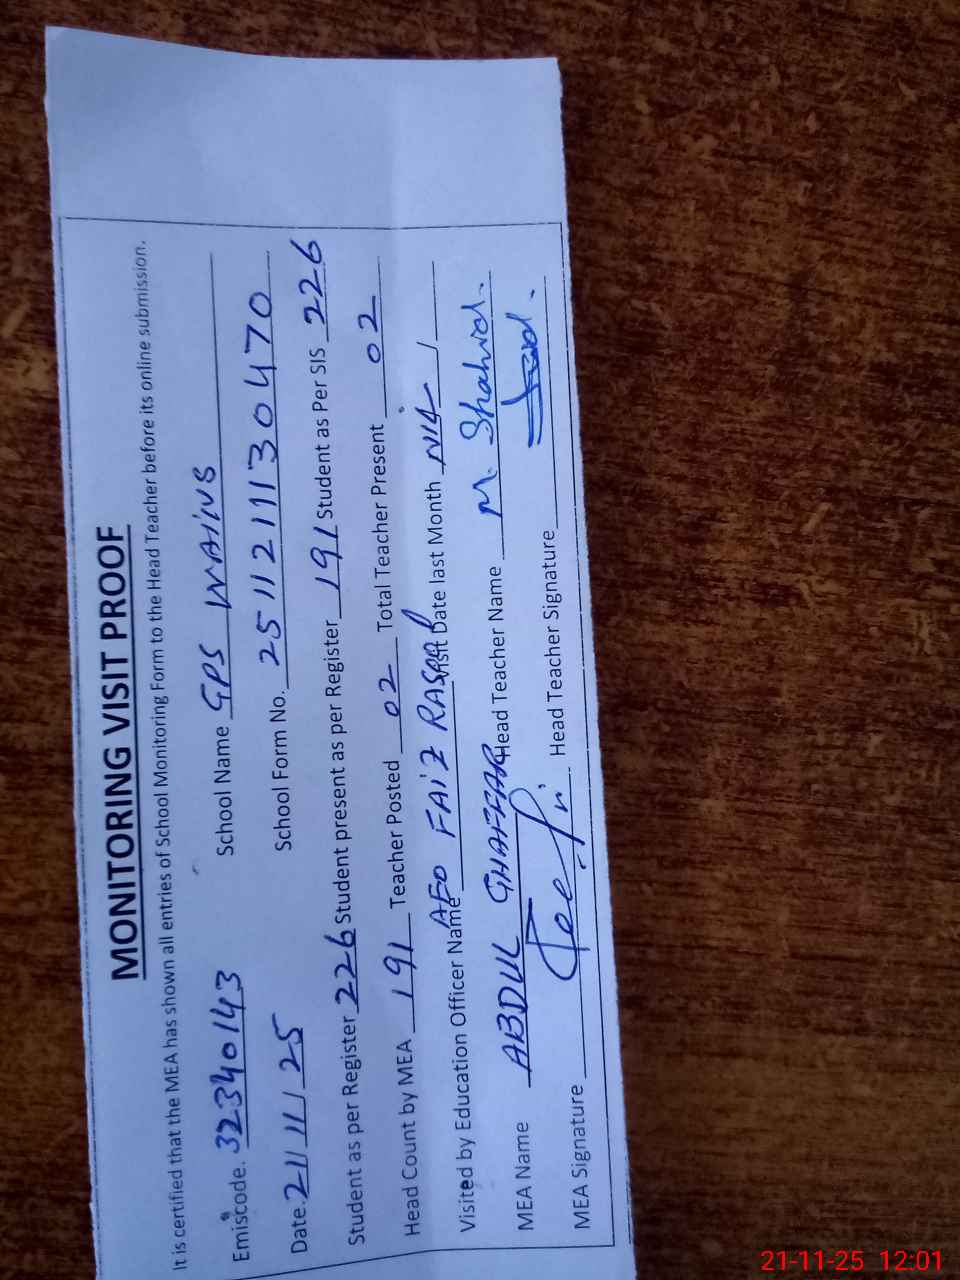 MONITORING VISIT PROOF
It is certified that the MEA has shown all entries of School Monitoring Form to the Head Teacher before its online submission.
Emiscode. 32340143 School Name GPS WAINS
Date. 21/11/25 School Form No. 2511211130470
Student as per Register 226 Student present as per Register 191 Student as Per SIS 226
Head Count by MEA 191 Teacher Posted 02 Total Teacher Present 02
Visited by Education Officer Name AEO FAIZ RASOOL Visit Date last Month
MEA Name ABDUL GHAFFAR Head Teacher Name M. Shahid.
MEA Signature Head Teacher Signature
21-11-25 12:01